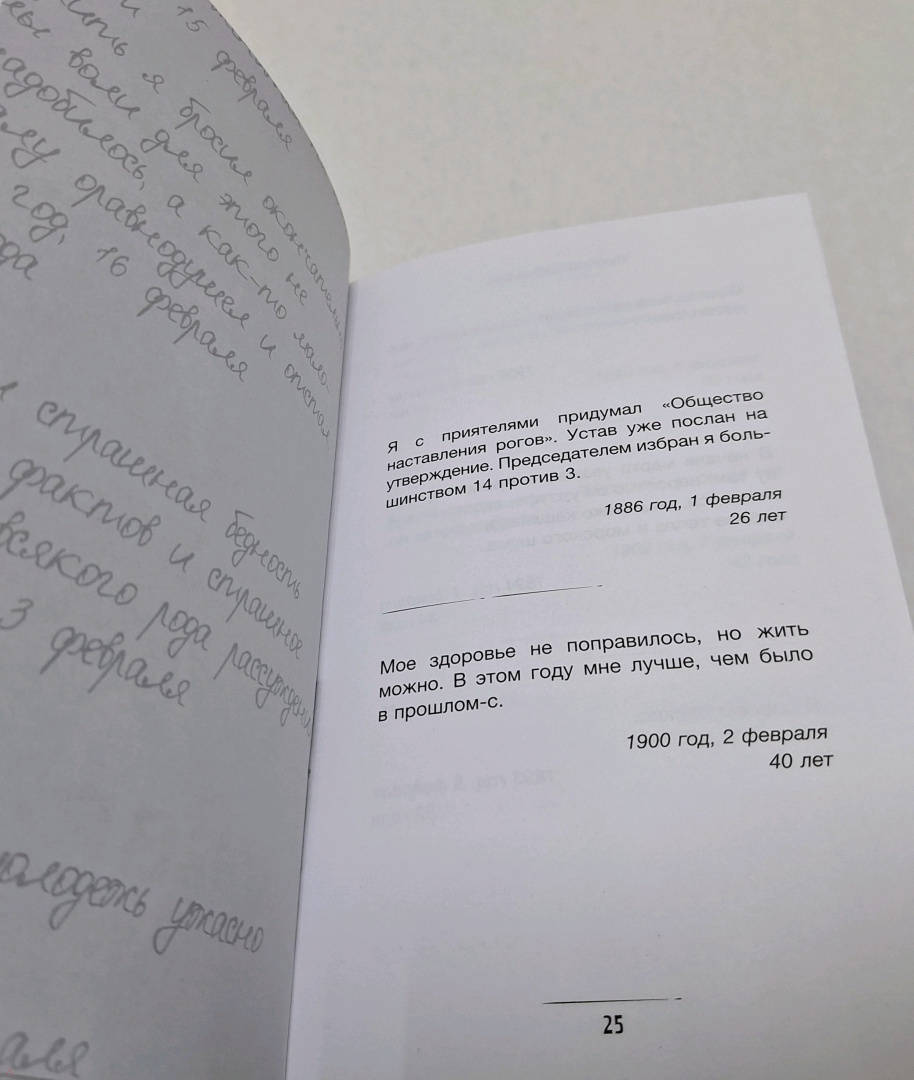 15 февраля
я бросил окончательно
воли для этого не
надобилось, а как-то мало-
оравнодушел и опостыл
год, 16 февраля
страшная бедность
фактов и страшное
всякого рода рассуждений
3 февраля
молодежь ужасно
Я с приятелями придумал «Общество
наставления рогов». Устав уже послан на
утверждение. Председателем избран я боль-
шинством 14 против 3.
1886 год, 1 февраля
26 лет
Мое здоровье не поправилось, но жить
можно. В этом году мне лучше, чем было
в прошлом-с.
1900 год, 2 февраля
40 лет
25